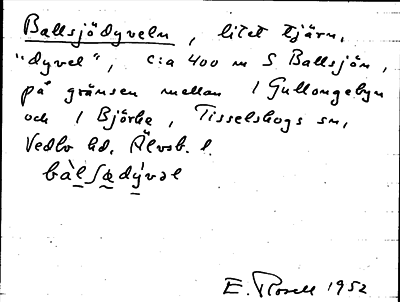 Ballsjödyveln, litet tjärn,
"dyvel", c:a 400 m S Ballsjön,
på gränsen mellan 1 Gullungebyn
och 1 Björke, Tisselskogs sn,
Vedbo hd. Älvsb. l.
bàlʃædývəl
E. Rosell 1952